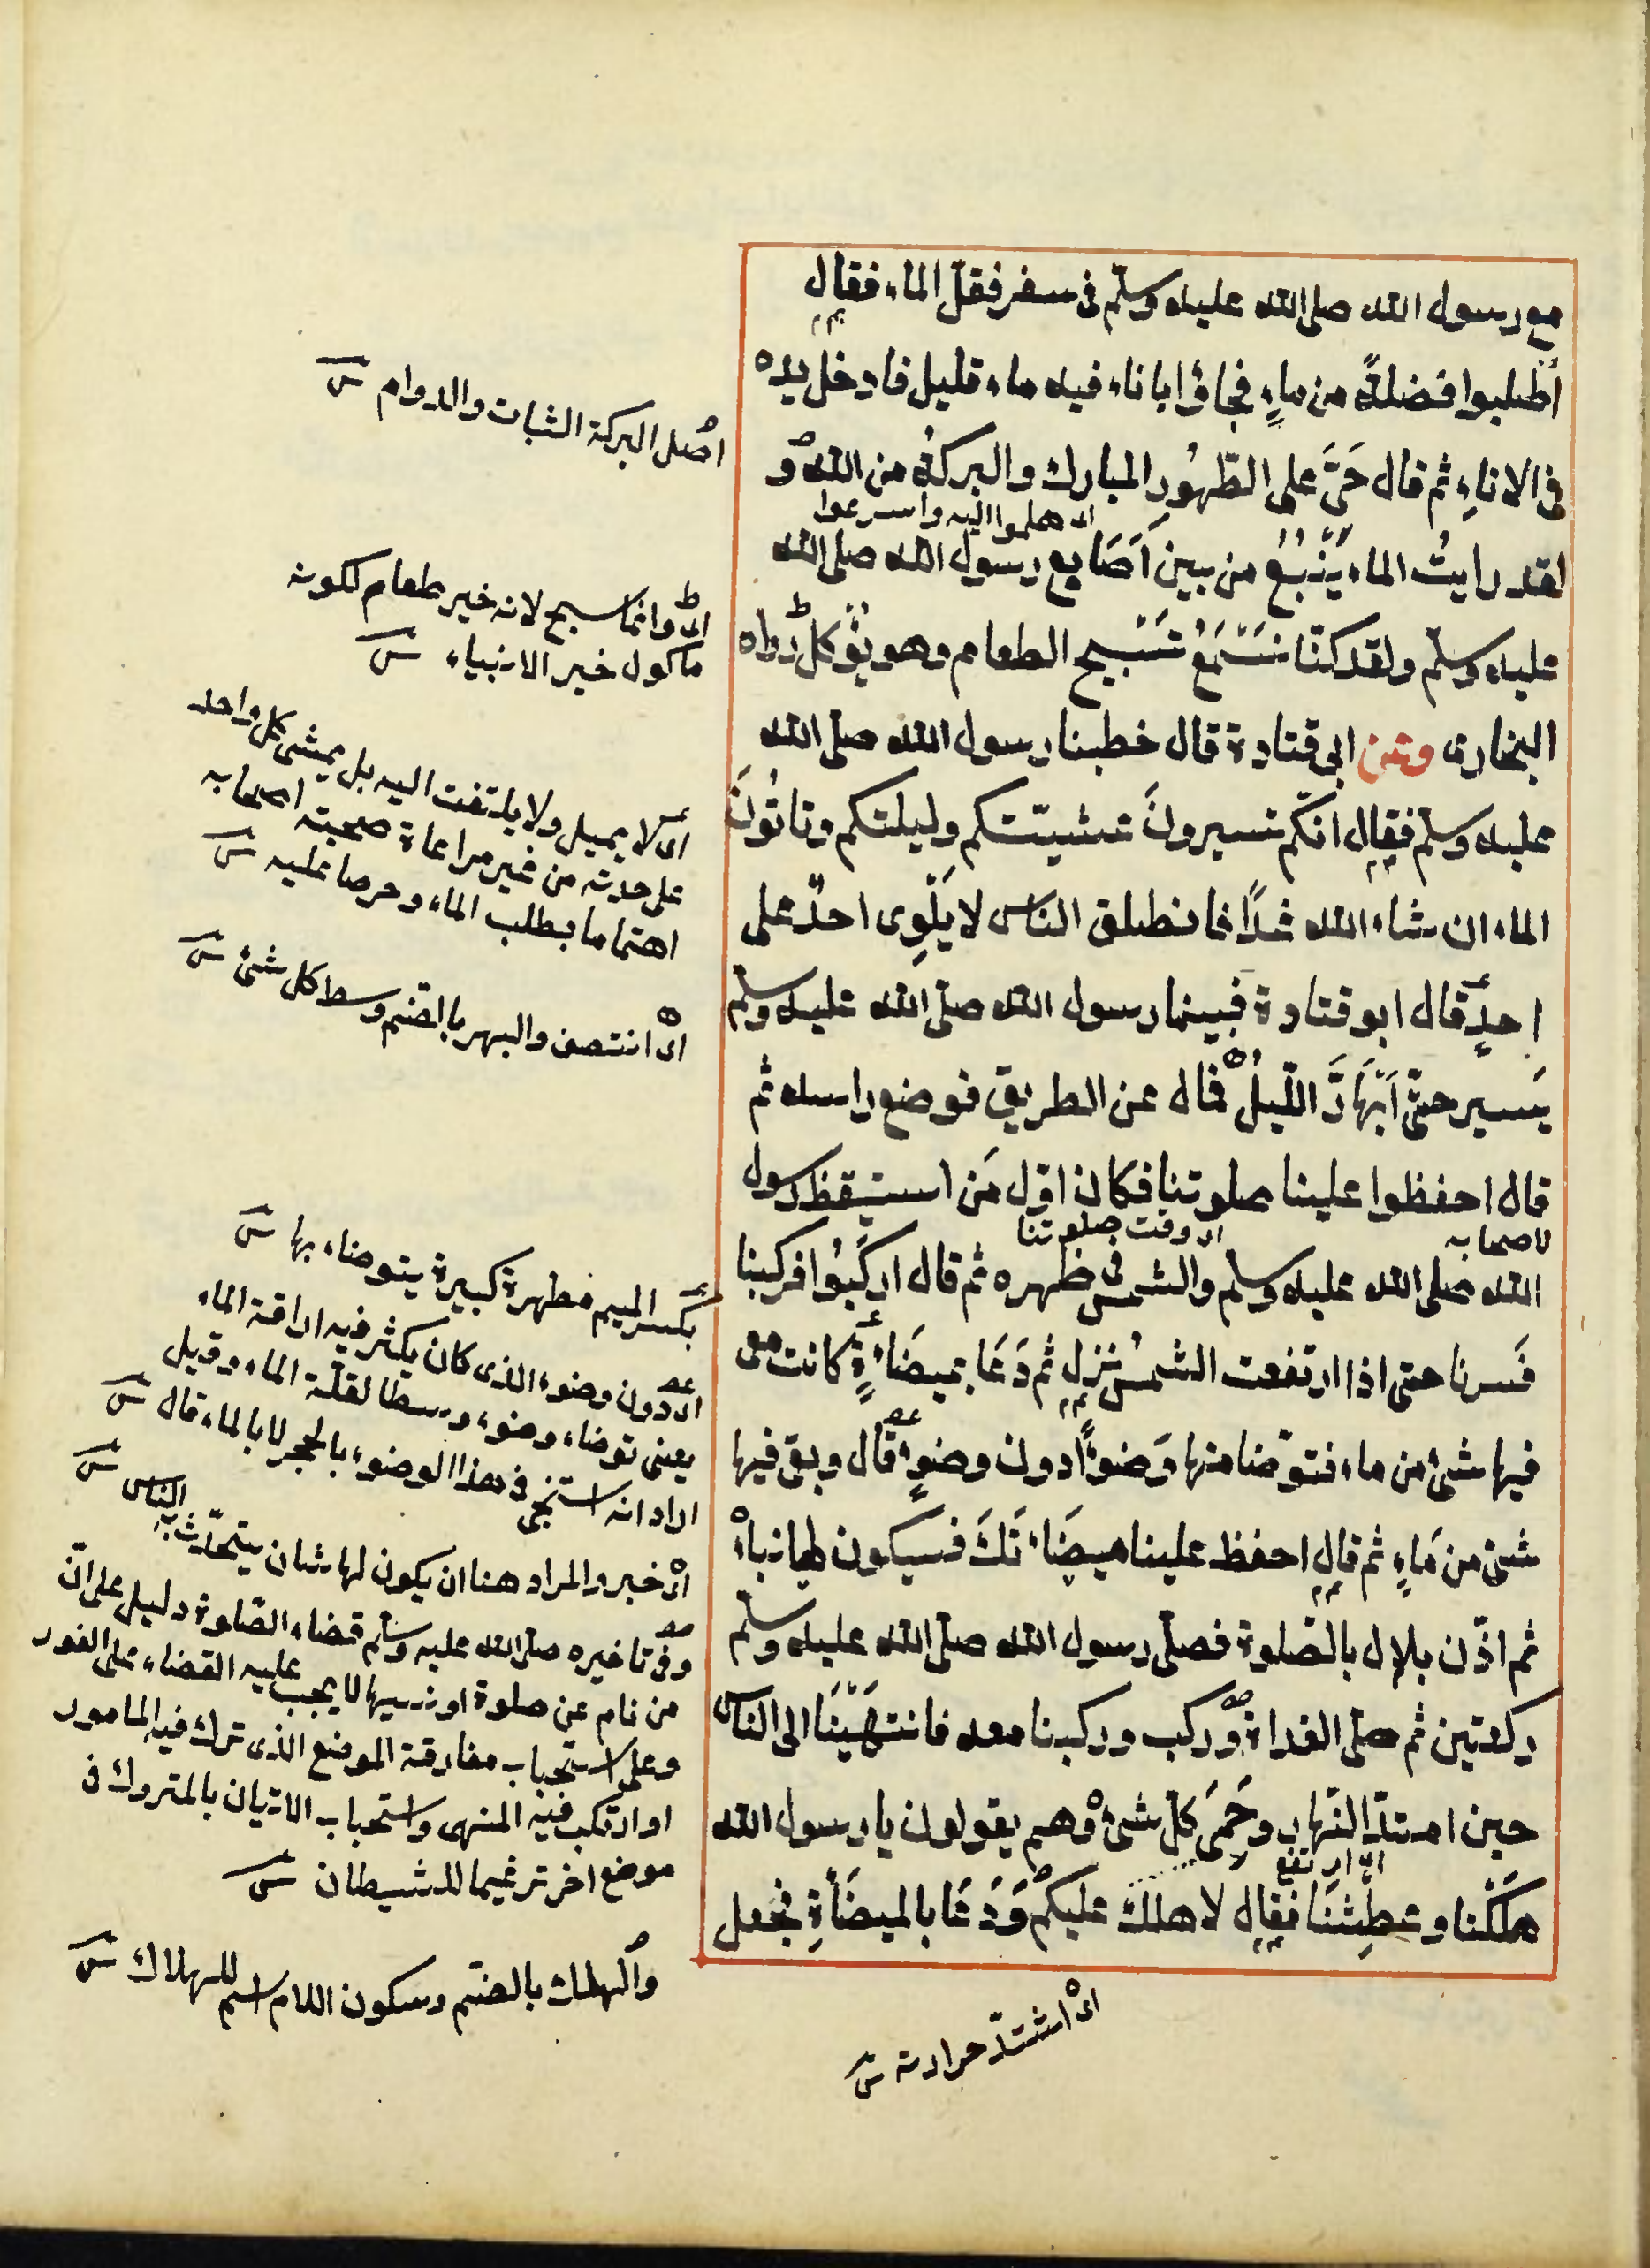 مع رسول الله صلى الله عليه وسلم فى سفر فقلّ الماء فقال
اُطلبوا فضلةً من ماءٍ فجاؤا باناء فيه ماء قليل فادخل يده
فى الاناءِ ثم قال حَىَّ على الطَّهُورِ المبارك والبركةُ من الله و
اى هلموا اليه واسرعوا
لقد رايتُ الماء يَنْبُعُ من بين اَصَابع رسول الله صلى الله
عليه وسلم ولقد كنّا نَسْمَعُ تَسْبيح الطعام وهو يُؤكل رواه
البخارى وعن ابى قتادة قال خطبنا رسول الله صلى الله
عليه وسلم فقال انكم تسيرونَ عشيّتكم وليلتكم وتاتُونَ
الماء ان شاء الله غدًا فانطلق الناس لا يَلْوِى احدٌ على
احدٍ قال ابو قتادة فبينما رسول الله صلى الله عليه وسلم
يَسير حتّى اَبْهَارَّ اللّيلُ فمال عن الطريق فوضع راسه ثم
قال احفظوا علينا صلوتنا فكان اوّل مَن استيقظ رسول
لاصحابه
اى وقت صلوتنا
الله صلى الله عليه وسلم والشمس فى ظهره ثم قال اركَبُوا فركبنا
فَسرنا حتى اذا ارتفعت الشمسُ نزل ثم دَعَا بميضَاءَةٍ كانت معى
فيها شئ من ماء فتوّضا منها وَضوءًا دون وضوءٍ قال وبقى فيها
شئ من مَاءٍ ثم قال احفظ علينا ميضَاءَتَكَ فسيكون لها نباءٌ
ثم اذّن بلال بالصّلوة فصلّى رسول الله صلّى الله عليه وسلم
ركعتين ثم صلّى الغداة وركب وركبنا معه فانتهَيْنَا الى الناس
حين امتدّ النّهار وحَمِىَ كلّ شئ وهم يقولون يا رسول الله
اى ارتفع
هَلَكْنا وعطِشْنَا فقال لا هلك عليكم وَدَعَا بالميضَأةِ فجعل
اصل البركة الثبات والدوام ش
اى وانما سبح لانه خير طعام لكونه
ماكول خير الانبياء ش
اى لا يميل ولا يلتفت اليه بل يمشى كل واحد
على حدته من غير مراعاة صحبته اصحابه
اهتماما بطلب الماء وحرصا عليه ش
اى انتصف والبهر بالضم وسط كل شئ ش
بكسر الميم مطهرة كبيرة يتوضاء بها ش
اى دون وضوء الذى كان يكثر فيه اراقة الماء
يعنى توضاء وضوء وسطا لقلّة الماء وقيل
اراد انه استنجى فى هذا الوضوء بالحجر لا بالماء قال ش
اى خبر والمراد هنا ان يكون لها شان يتحدّث به الناس ش
وفى تاخيره صلى الله عليه وسلم قضاء الصّلوة دليل على انّ
من نام عن صلوة او نسيها لا يجب عليه القضاء على الفور
وعلى استحباب مفارقة الموضع الذى ترك فيه المامور
او ارتكب فيه المنهى واستحباب الاتيان بالمتروك فى
موضع اخر ترغيما للشيطان ش
والهلك بالضم وسكون اللام اسم للهلاك ش
اى اشتدّ حرارته ش